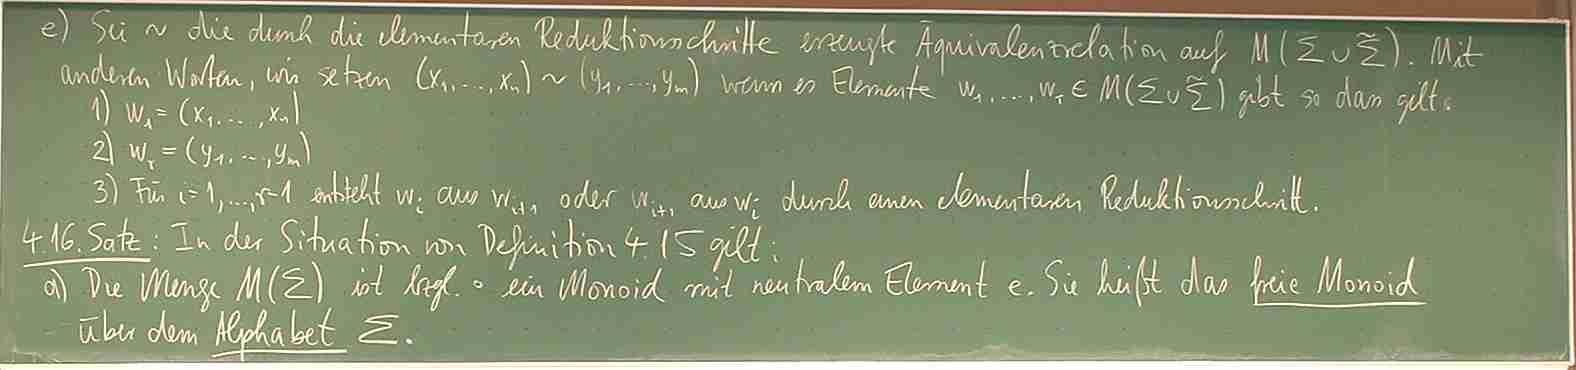 e) Sei ~ die durch die elementaren Reduktionsschritte erzeugte Äquivalenzrelation auf M(Σ∪Σ̃). Mit
anderen Worten, wir setzen (x₁,...,xₙ) ~ (y₁,...,yₘ) wenn es Elemente w₁,...,wᵣ ∈ M(Σ∪Σ̃) gibt so dass gilt:
1) w₁ = (x₁,...,xₙ)
2) wᵣ = (y₁,...,yₘ)
3) Für i=1,...,r-1 entsteht wᵢ aus wᵢ₊₁ oder wᵢ₊₁ aus wᵢ durch einen elementaren Reduktionsschritt.
4.16. Satz: In der Situation von Definition 4.15 gilt:
a) Die Menge M(Σ) ist bzgl. ∘ ein Monoid mit neutralem Element e. Sie heißt das freie Monoid
über dem Alphabet Σ.